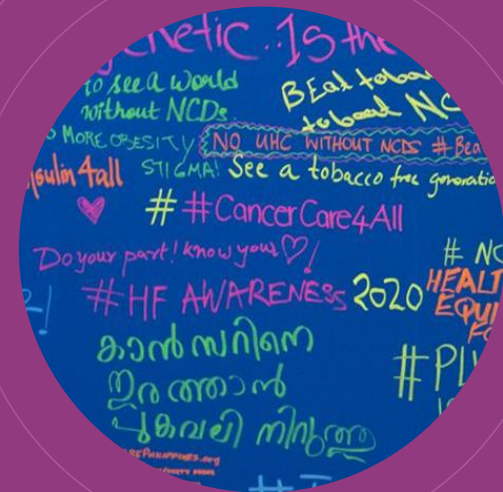 netic.. Is the
to see a world
without NCDs
BEat toba
to beat NC
MORE OBESITY
STIGMA!
NO UHC WITHOUT NCDS # Bea
nsulin 4all
See a tobacco free generatio
# #CancerCare4All
Do your part! know your ♡!
# NC
#HF AWARENESS 2020
HEALT
EQUI
FO
കാൻസറിനെ
തുരത്താൻ
പുകവലി നിറുത്തൂ
#PL